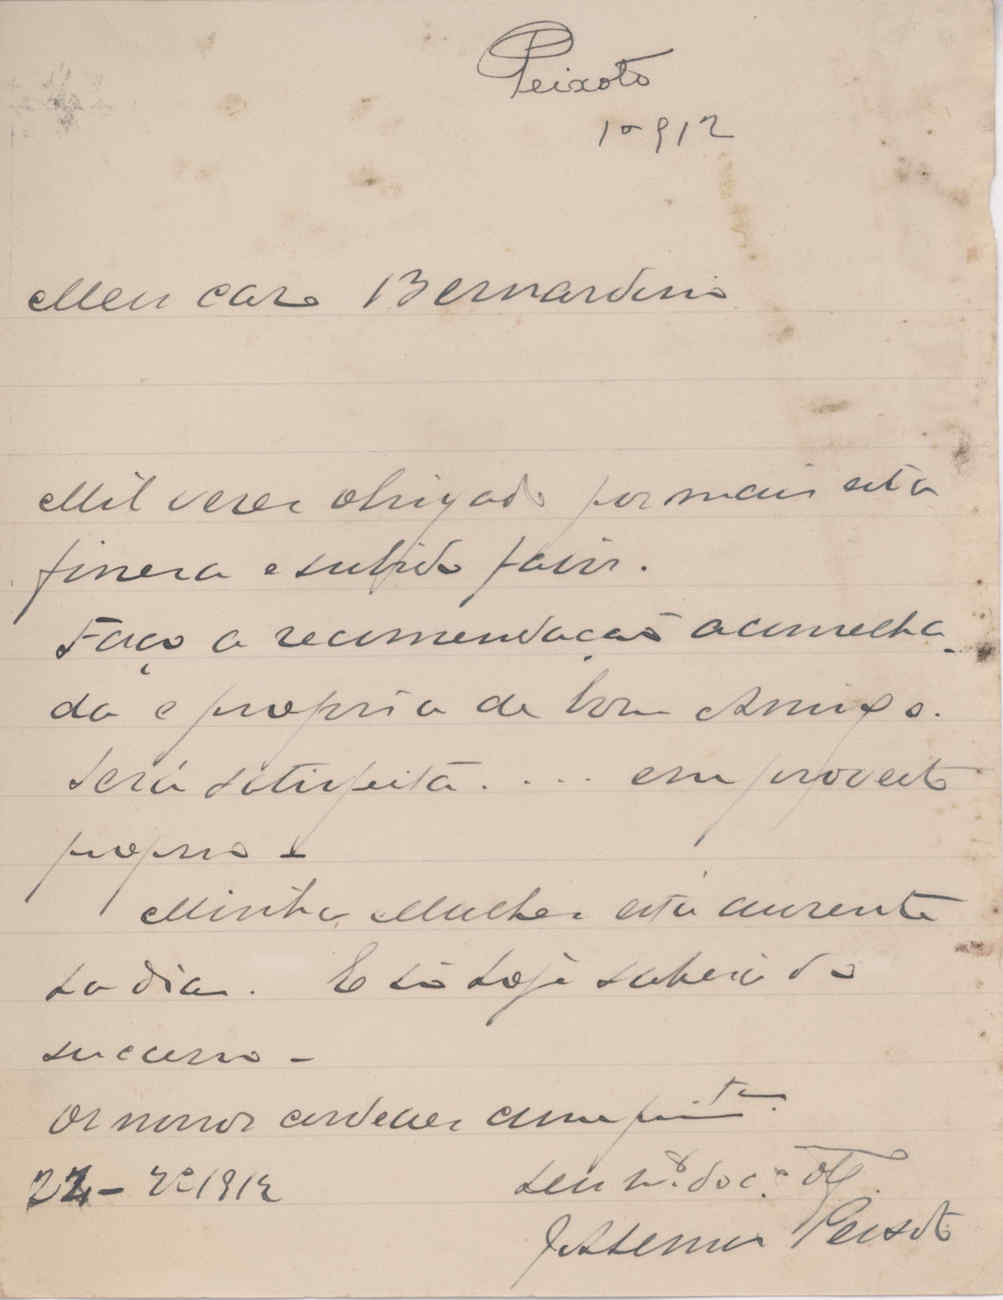 Peixoto
10-912
Meu caro Bernardino
Mil vezes obrigado por mais esta
fineza e subido favor.
Faço a recomendação aconselha-
da e propria de bom Amigo.
Será satisfeita.... em proveito
proprio -
Minha Mulher está ausente
ha dias. E só hoje saberá do
sucesso -
Os nossos cordeaes cumpritos.
22- 1912
Seu
Peixoto